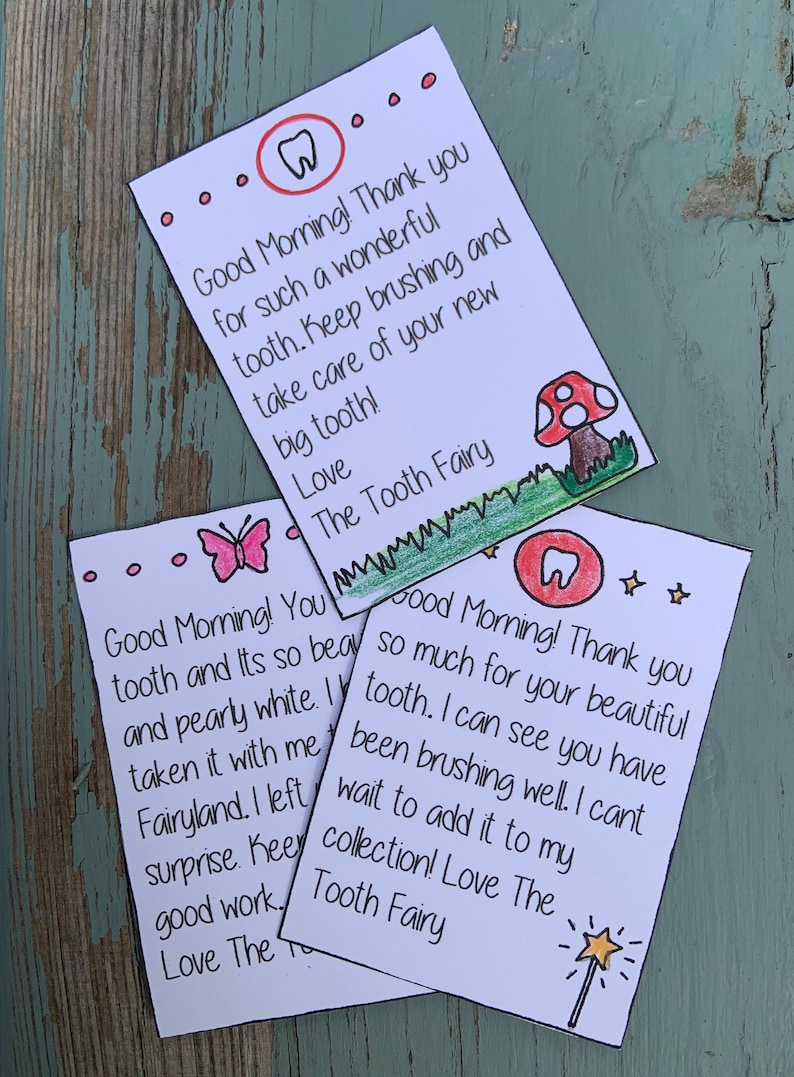 Good Morning! Thank you
for such a wonderful
tooth. Keep brushing and
take care of your new
big tooth!
Love
The Tooth Fairy
Good Morning! You
tooth and Its so
and pearly white. I
taken it with me
Fairyland. I left
surprise.
good work.
Love The
Good Morning! Thank you
so much for your beautiful
tooth. I can see you have
been brushing well. I cant
wait to add it to my
collection! Love The
Tooth Fairy